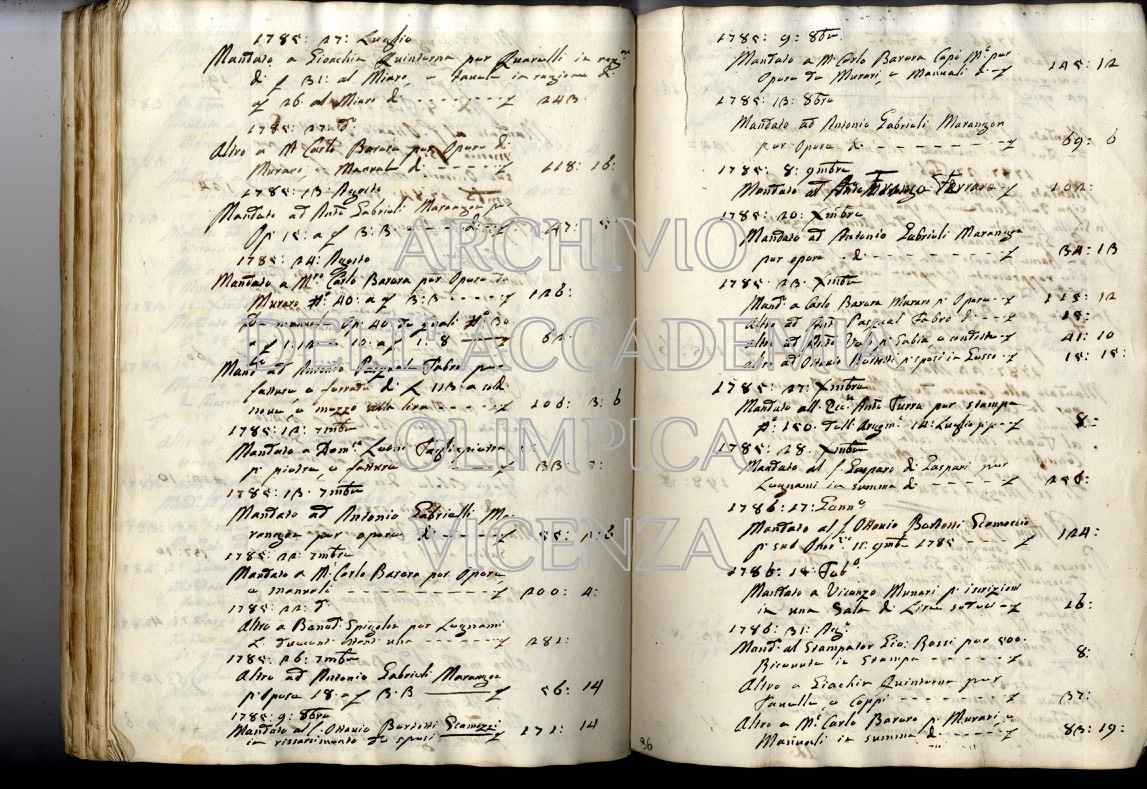 1785: 27: Luglio
Mandato a Gioachin Quinterna per Quarelli in rag:ne
di £ 31: al Miaro, e tavele in ragione di
£ 26 al Miaro di - - - £ 243
1785: 27 d:
Altro a M: Carlo Barera per Opere di
Muraro e Manual di - - - £ 118: 16:
1785: 13: Agosto
Mandato ad Anto Gabrieli Marangon per
Op: 15: a £ 3: 3 - - - £ 47: 5
1785: 24: Agosto
Mandato a M:ro Carlo Barera per Opere da
Muraro N:o 40: a £ 3:3 - - - £ 126:
Op: 40
a £ 1:12 10: a £ 1: 8 £ 62:
Mand:to ad Antonio Pasqual Fabro per
fattura, e ferrata di £ 113: a soldi
nove, e mezzo alla lira - - - £ 106: 3: 6
1785: 12: 7mbre
Mandato a Dom:co Tagliapietra
p: pietre, e fattura £ 33: 5:
1785: 13: 7mbre
Mandato ad Antonio Gabrielli Ma-
rangon per opere di - - - £ 55: 2: 6
1785: 22: 7mbre
Mandato a M: Carlo Barera per Opere
e manuali - - - £ 200: 4:
1785: 22: d:
Altro a Bened: Spigolon per Legnami
£ 281:
1785: 26: 7mbre
Altro ad Antonio Gabrieli Marangon
p: Opere 18: a £ 3:3 £ 56: 14
1785: 9: 8bre
Mandato al S: Ottavio Bertotti Scamozzi
in risarcimento de spesi £ 171: 14
1785: 9: 8bre
Mandato a M: Carlo Barera Capo M:o per
Opere da Murari, e Manuali di - £ 145: 12
1785: 13: 8bre
Mandato ad Antonio Gabrieli Marangon
per Opere di - - - £ 69: 6
1785: 8: 9mbre
Mandato al Anto Ferraro £ 102:
1785: 20: Xmbre
Mandato ad Antonio Gabrieli Marangon
per opere di - - - £ 34: 13
1785: 23: Xmbre
Mand: a Carlo Barera Muraro p: Opere - £ 115: 12
altro ad Anto Pasqual Fabro di - - £ 15:
altro ad Anto p: Sabia, e £ 41: 10
altro ad Ottavio Bertotti p: spesi in £ 15: 15:
1785: 27: Xmbre
Mandato all' Anto Turra per stampa
N:o 150: Luglio p:p: £ 8:
1785: 28: Xmbre
Mandato al S: Gasparo di Gaspari per
Legnami in summa di - - - £ 256:
1786: 17: Genn:o
Mandato al S: Ottavio Bertotti Scamozzi
p: suo Onor:io 15: 9mbre 1785 - - - £ 124:
1786: 15: Feb:o
Mandato a Vicenzo Munari p: iscrizion
in una £ 16:
1786: 31:
Mand: al Stampator Gio: Rossi per 500:
Ricevute in Stampa - - - £ 8:
Altro a Giachin Quinterna per
Tavelle, e Coppi - - - £ 37:
Altro a M:o Carlo Barera p: Murari, e
Manuali in summa di - - - £ 83: 19:
96
ARCHIVIO
DELL'ACCADEMIA
OLIMPICA
VICENZA